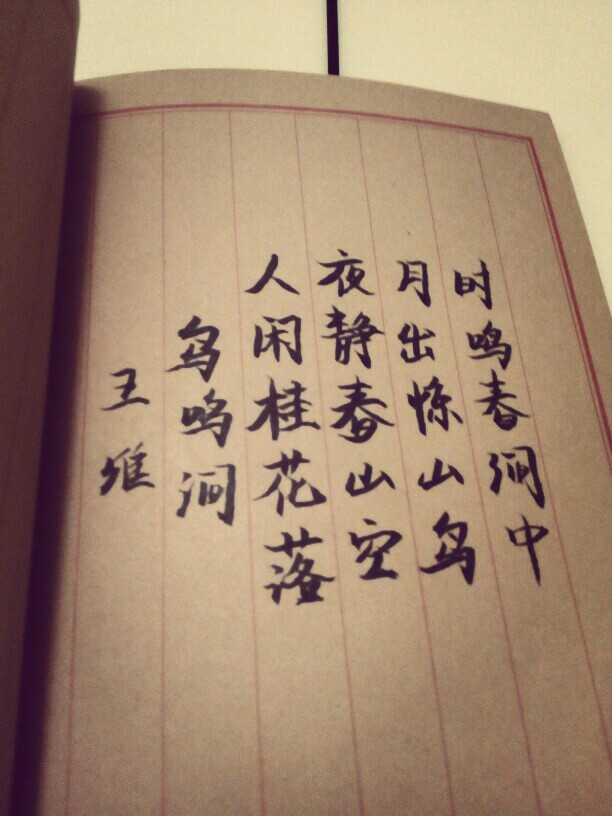 王维
鸟鸣涧
人闲桂花落
夜静春山空
月出惊山鸟
时鸣春涧中